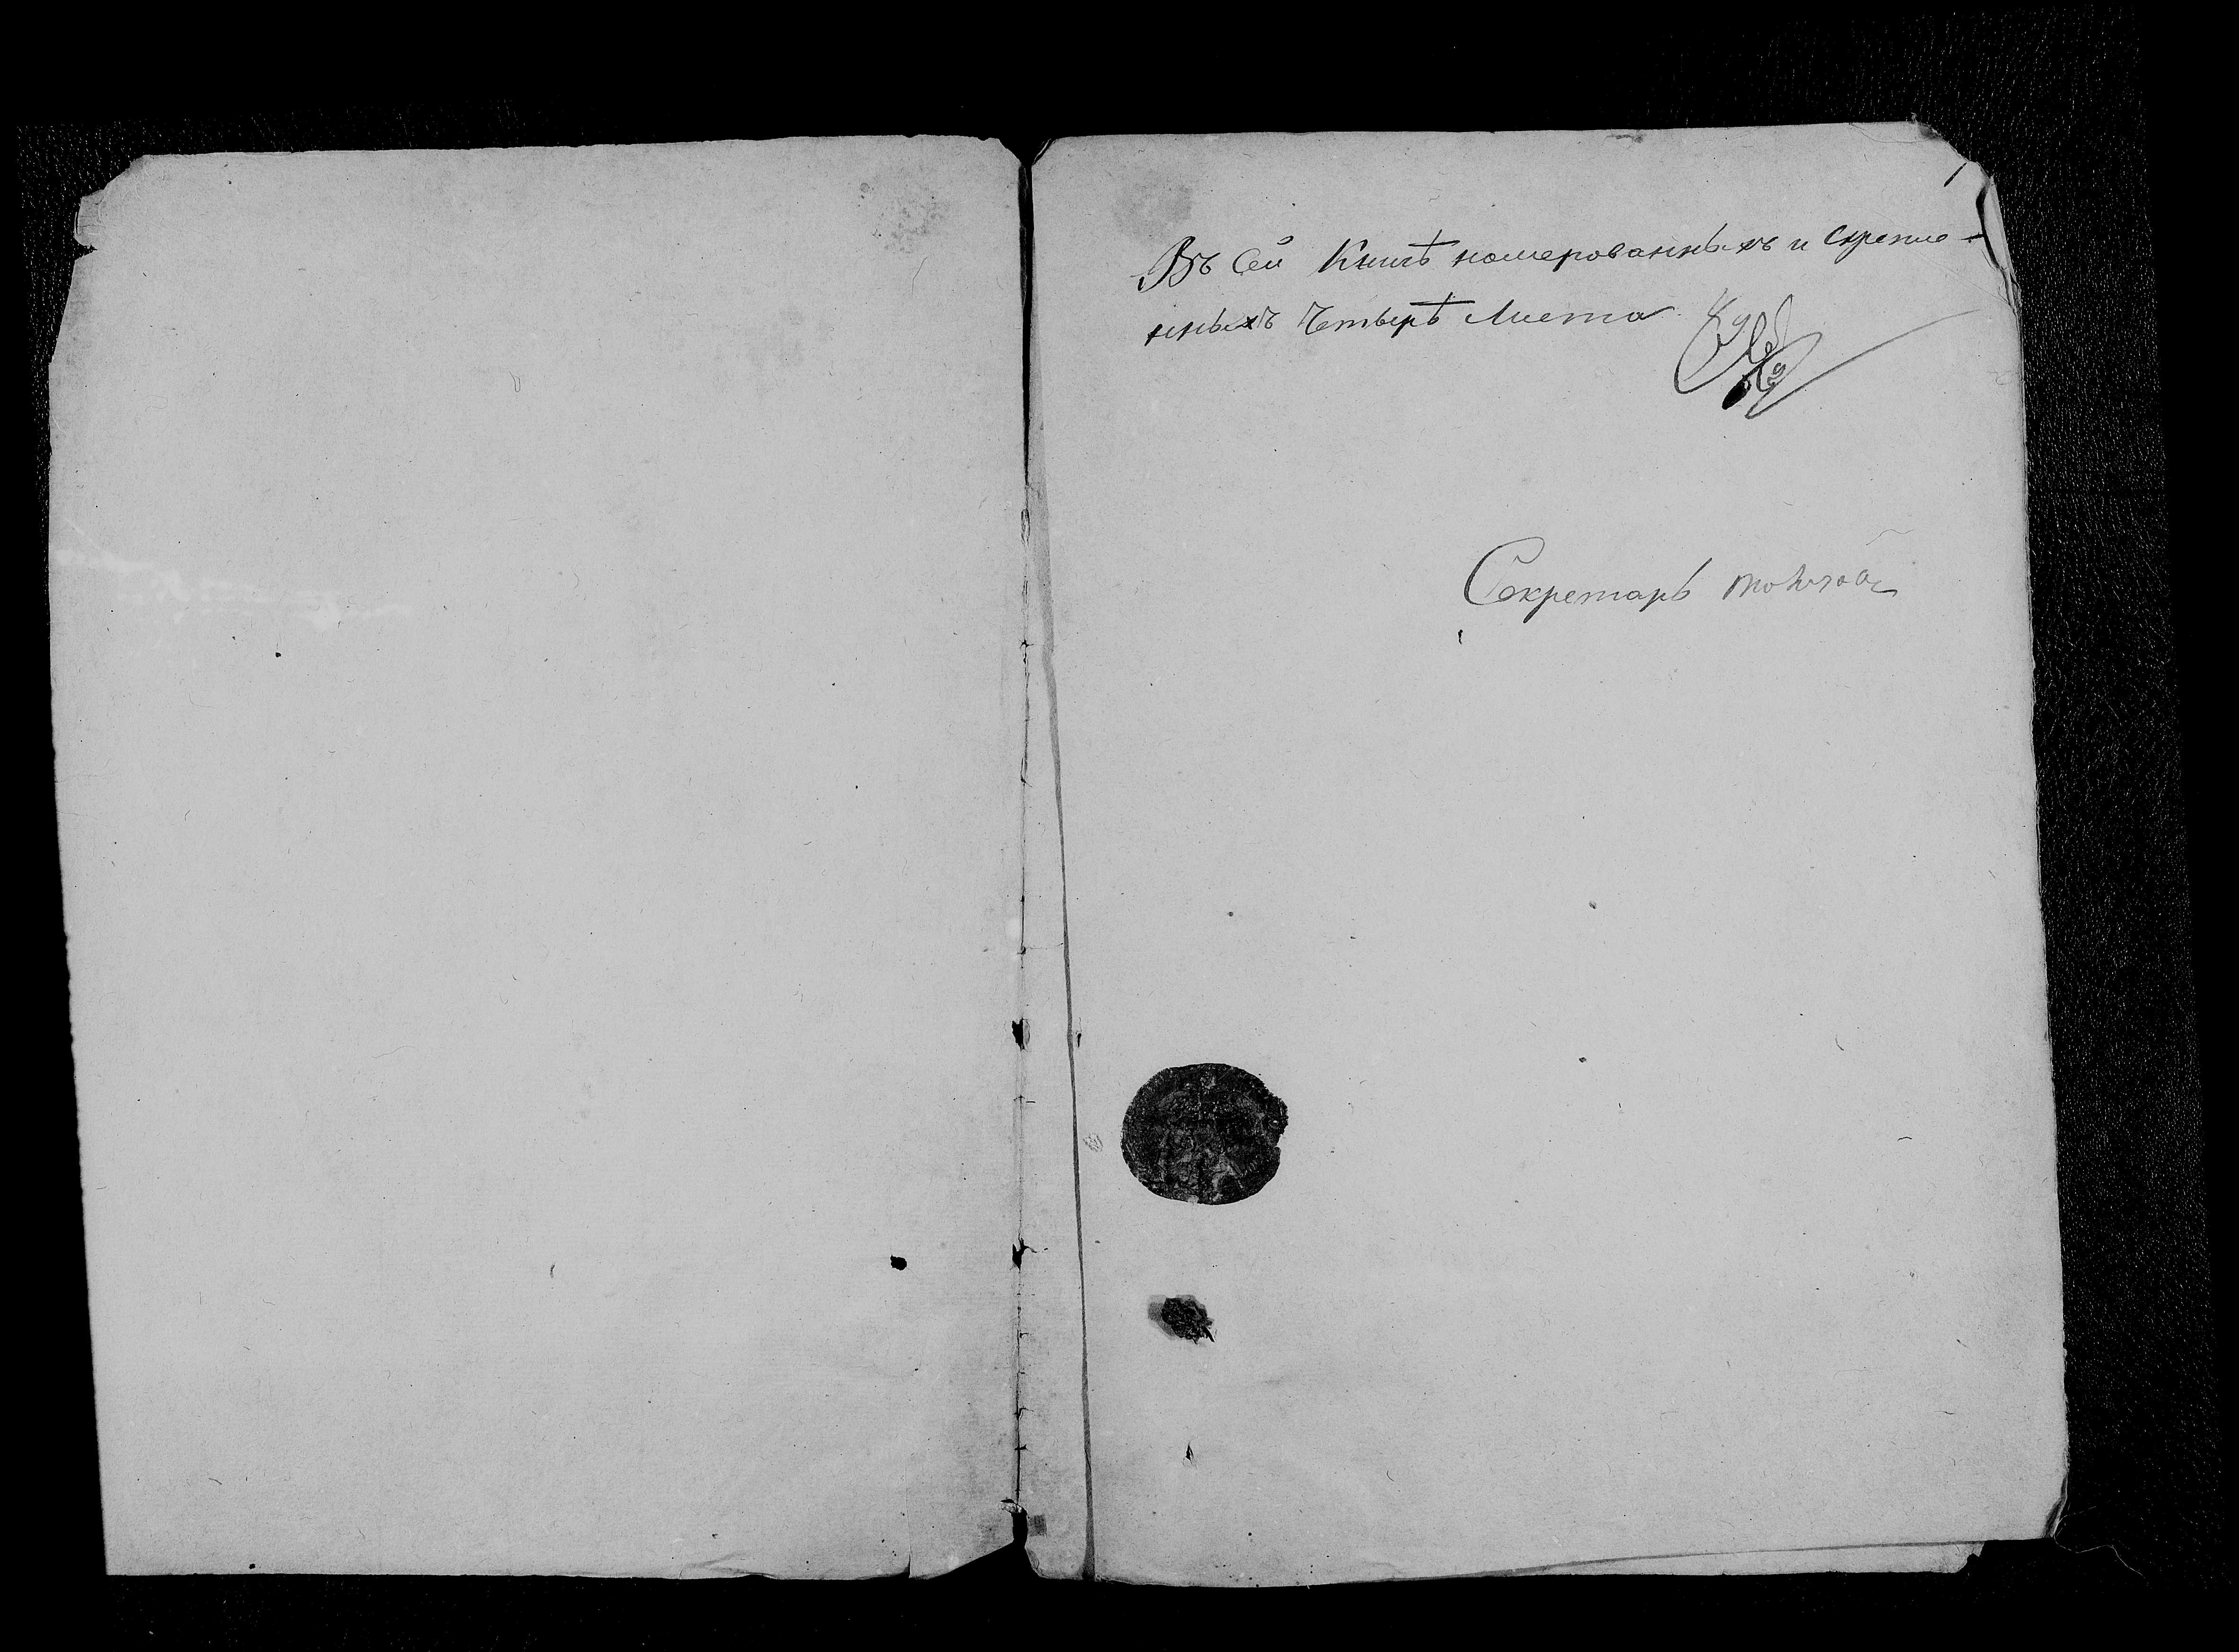 1
Въ Сей Книгѣ номерованныхъ и скрепле-
нныхъ Четырѣ Листа
Секретарь